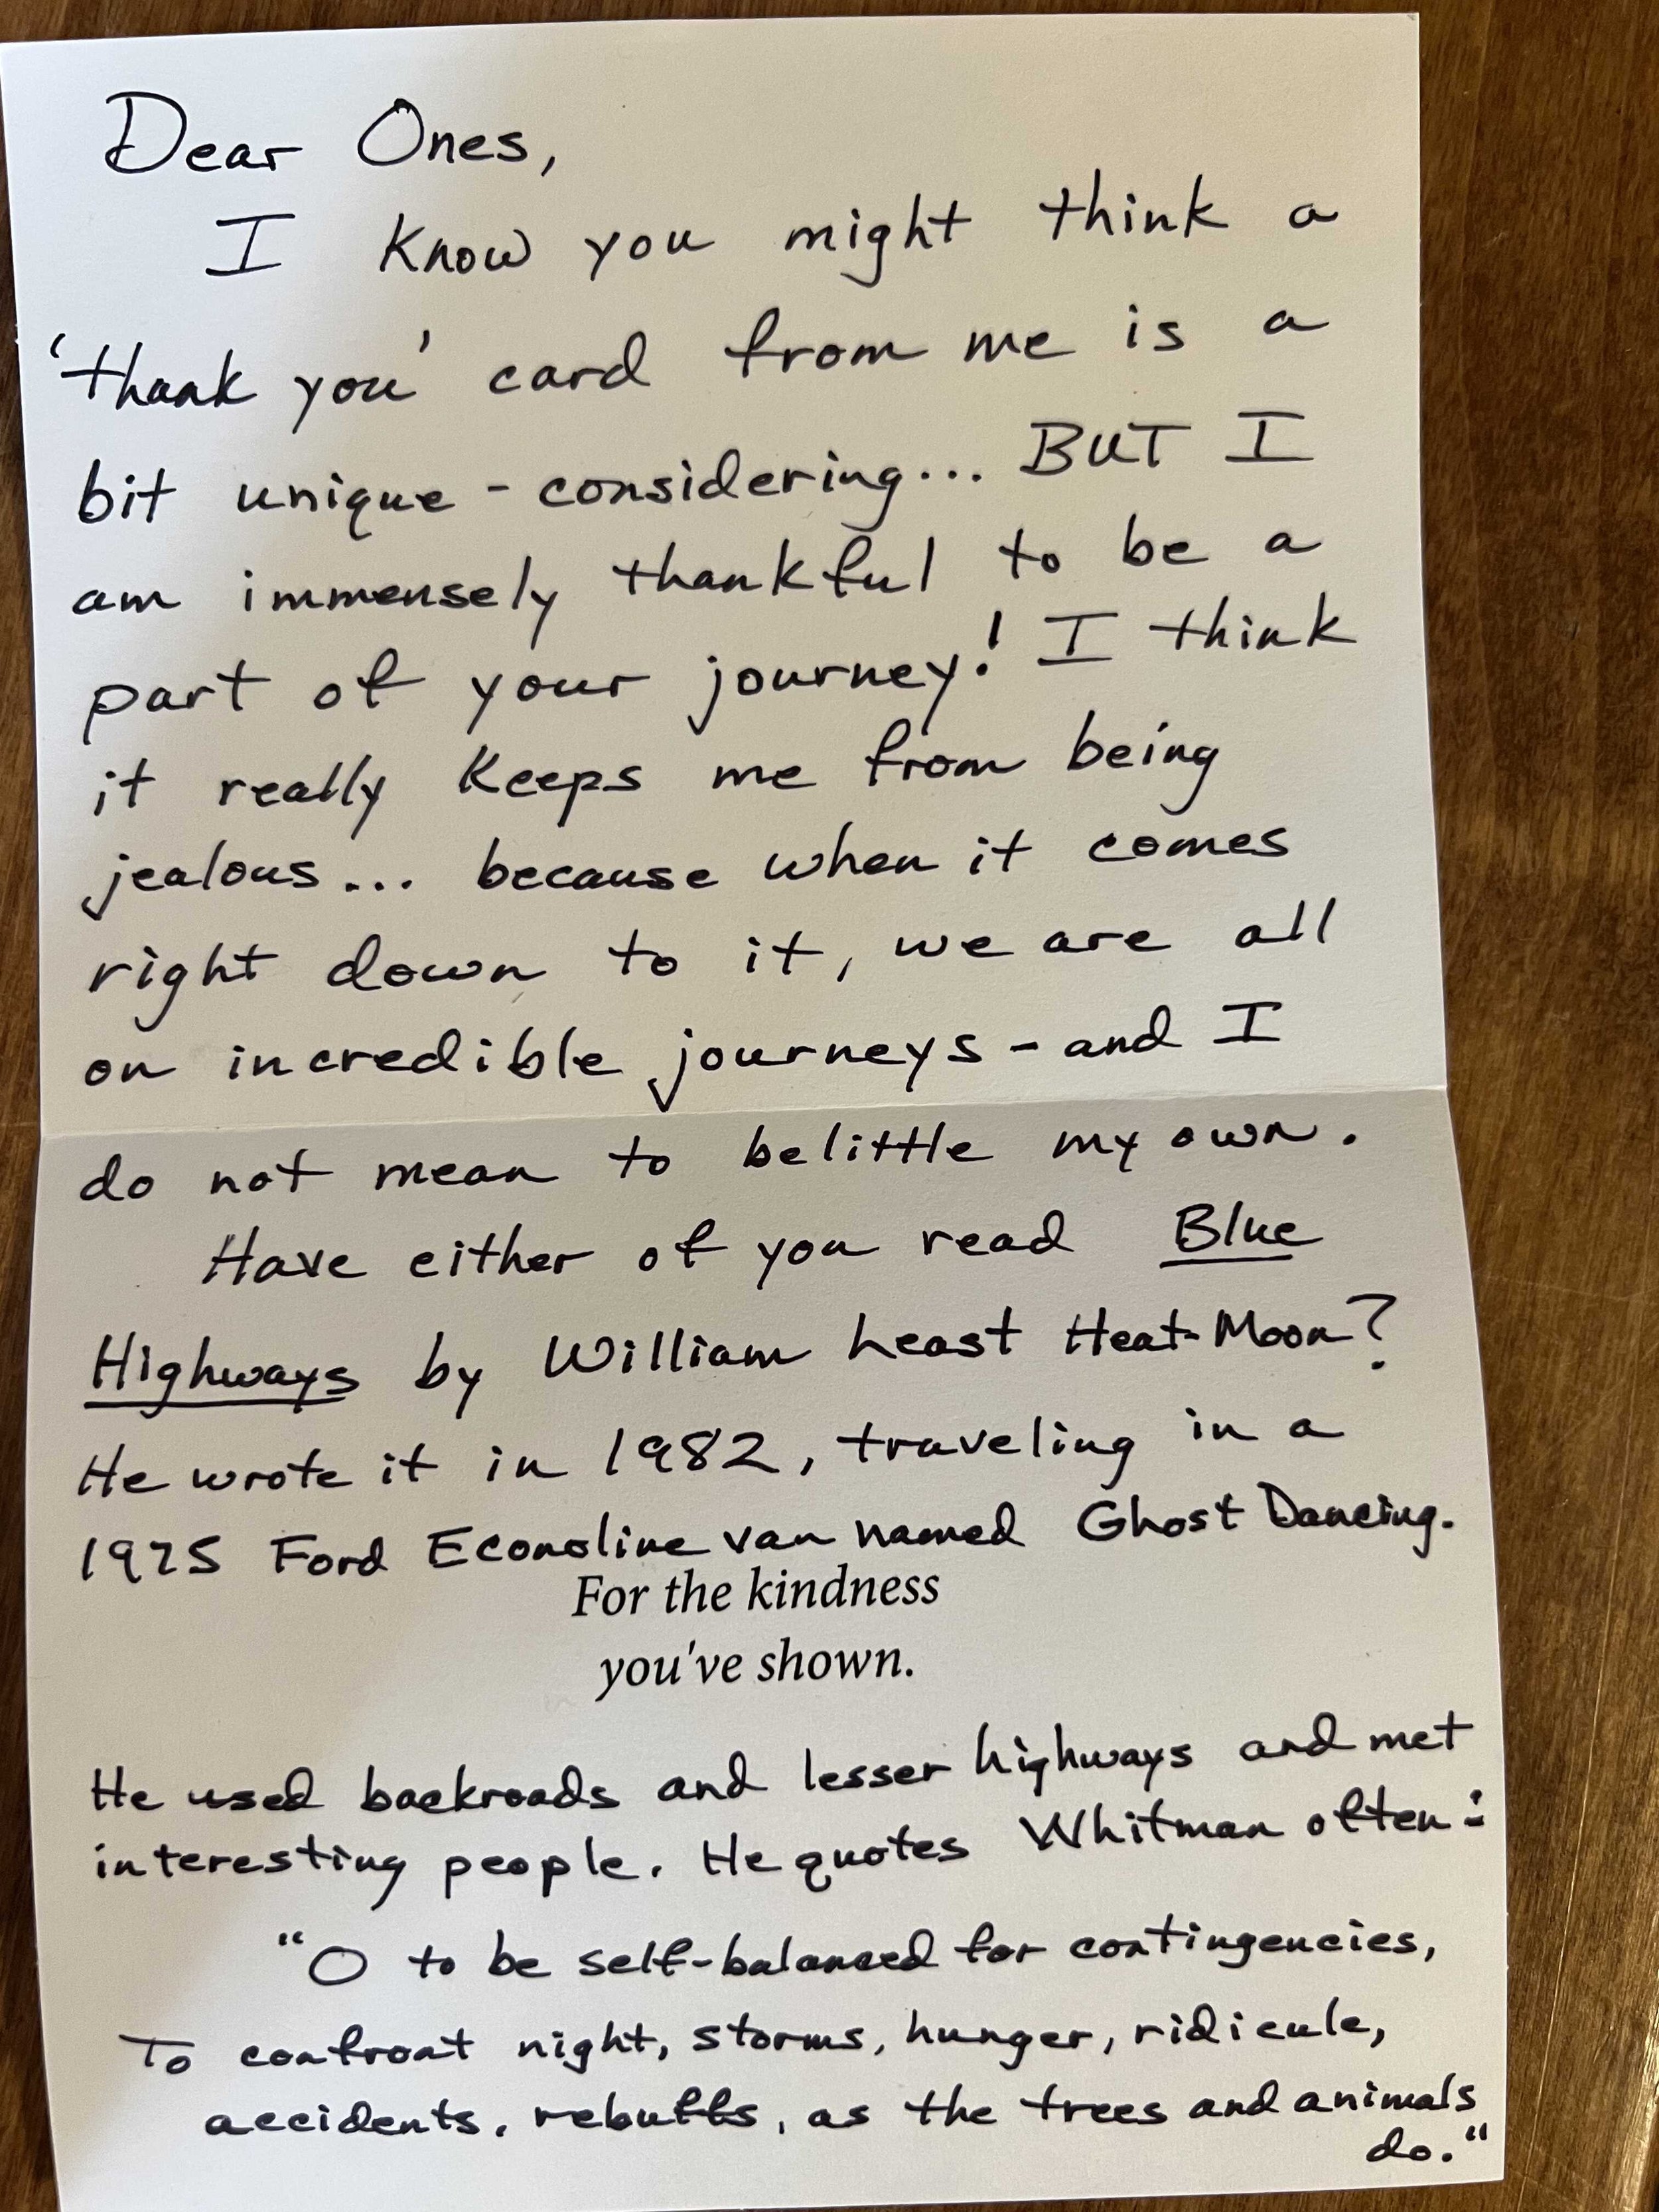 Dear Ones,
I know you might think a
'thank you' card from me is a
bit unique - considering... BUT I
am immensely thankful to be a
part of your journey! I think
it really keeps me from being
jealous... because when it comes
right down to it, we are all
on incredible journeys - and I
do not mean to belittle my own.
Have either of you read Blue
Highways by William Least Heat-Moon?
He wrote it in 1982, traveling in a
1975 Ford Econoline van named Ghost Dancing.
For the kindness
you've shown.
He used backroads and lesser highways and met
interesting people. He quotes Whitman often:
"O to be self-balanced for contingencies,
To confront night, storms, hunger, ridicule,
accidents, rebuffs, as the trees and animals
do."